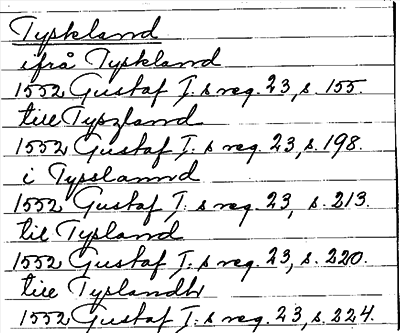 Tyskland
ifrå Tyskland
1552 Gustaf I:s reg. 23, s. 155.
till Tyszland
1552 Gustaf I:s reg. 23, s. 198.
i Tysslannd
1552 Gustaf I:s reg. 23, s. 213.
til Tysland
1552 Gustaf I:s reg. 23, s. 220.
till Tyslandh
1552 Gustaf I:s reg. 23, s. 224.